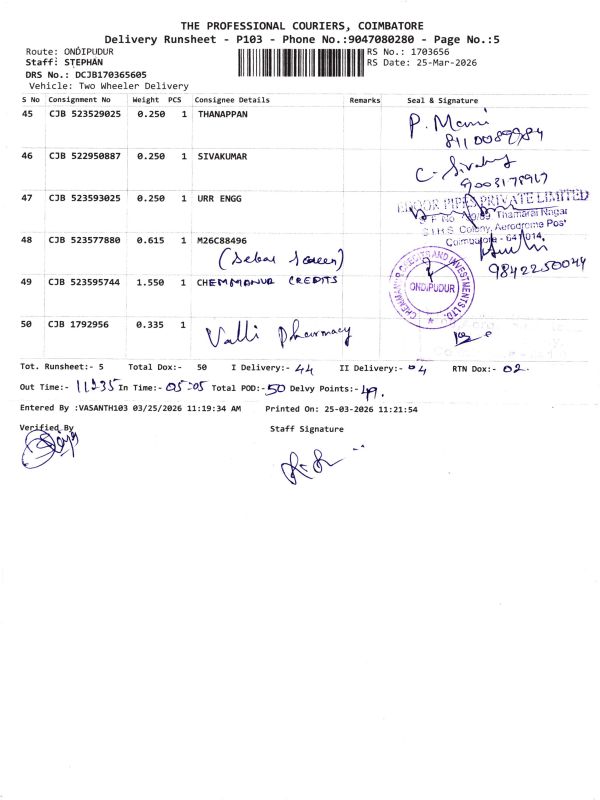 THE PROFESSIONAL COURIERS, COIMBATORE
Delivery Runsheet - P103 - Phone No.:9047080280 - Page No.:5
Route: ONDIPUDUR RS No.: 1703656
Staff: STEPHAN RS Date: 25-Mar-2026
DRS No.: DCJB170365605
Vehicle: Two Wheeler Delivery
S No Consignment No Weight PCS Consignee Details Remarks Seal & Signature
45 CJB 523529025 0.250 1 THANAPPAN P. Mani
8110089984
46 CJB 522950887 0.250 1 SIVAKUMAR C. Siva
9003178967
47 CJB 523593025 0.250 1 URR ENGG PIPES PRIVATE LIMITED
S.F. No. Thamarai Nagar
S.I.H.S. Colony, Aerodrome Post
48 CJB 523577880 0.615 1 M26C88496 Coimbatore - 641014
(Sebas Screen) 9842250044
49 CJB 523595744 1.550 1 CHEMMANUR CREDITS CHEMMANUR CREDITS AND INVESTMENTS LTD. ONDIPUDUR
50 CJB 1792956 0.335 1 Valli Pharmacy
Tot. Runsheet:- 5 Total Dox:- 50 I Delivery:- 44 II Delivery:- 04 RTN Dox:- 02.
Out Time:- 11235 In Time:- 05:05 Total POD:- 50 Delvy Points:- 49.
Entered By :VASANTH103 03/25/2026 11:19:34 AM Printed On: 25-03-2026 11:21:54
Verified By Staff Signature